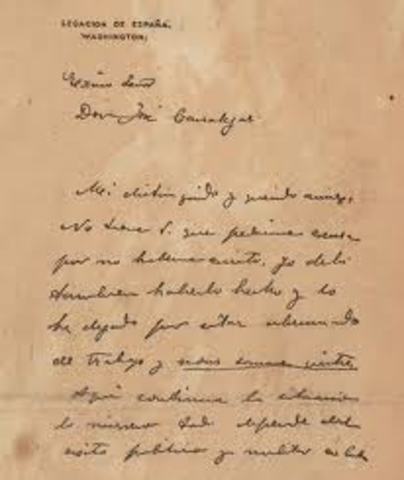 LEGACION DE ESPAÑA.
WASHINGTON.
Excmo Señor
Don José Canalejas
Mi distinguido y querido amigo,
No tiene V. que pedirme excusa
por no haberme escrito. yo debí
tambien haberlo hecho y lo
he dejado por estar abrumado
de trabajo y
Aquí continua la situacion
lo mismo. todo depende del
exito politico y militar en Cuba